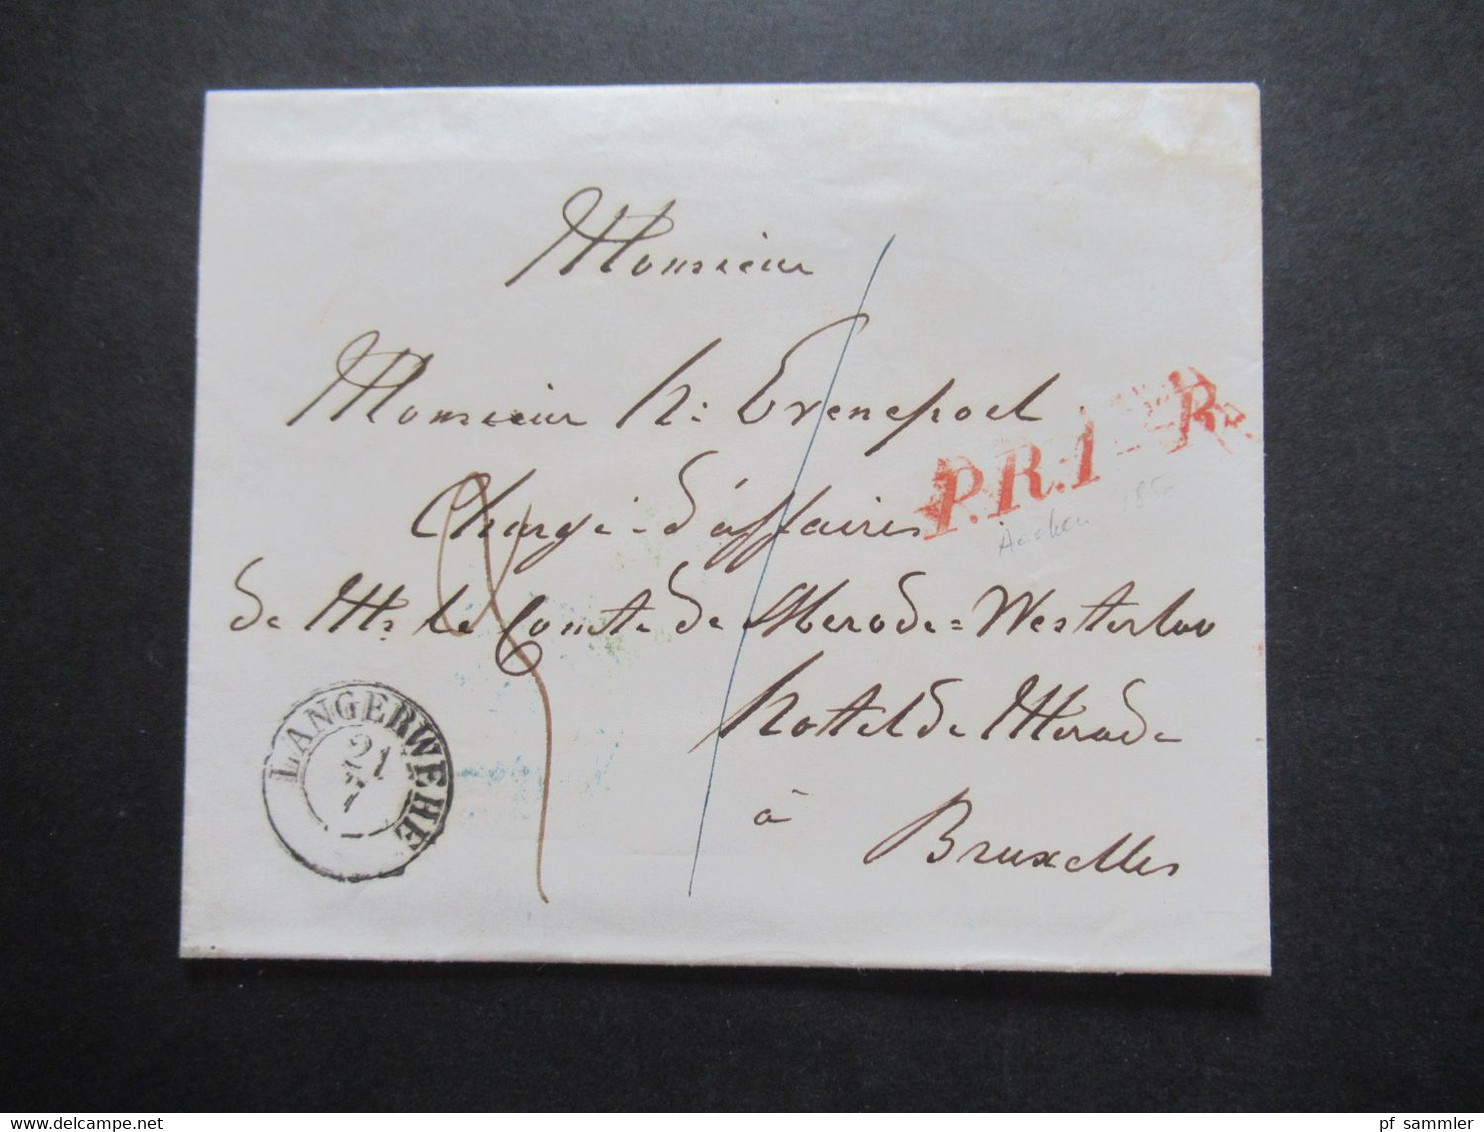 Monsieur
Monsieur h: Evenepoel
Chargé-d'affaires
de Mr le Comte de Merode=Westerloo
hottel de Merode
à
Bruxelles
P.R.1 R.
Aachen 185
LANGERWEHE
21
7
pf_sammler